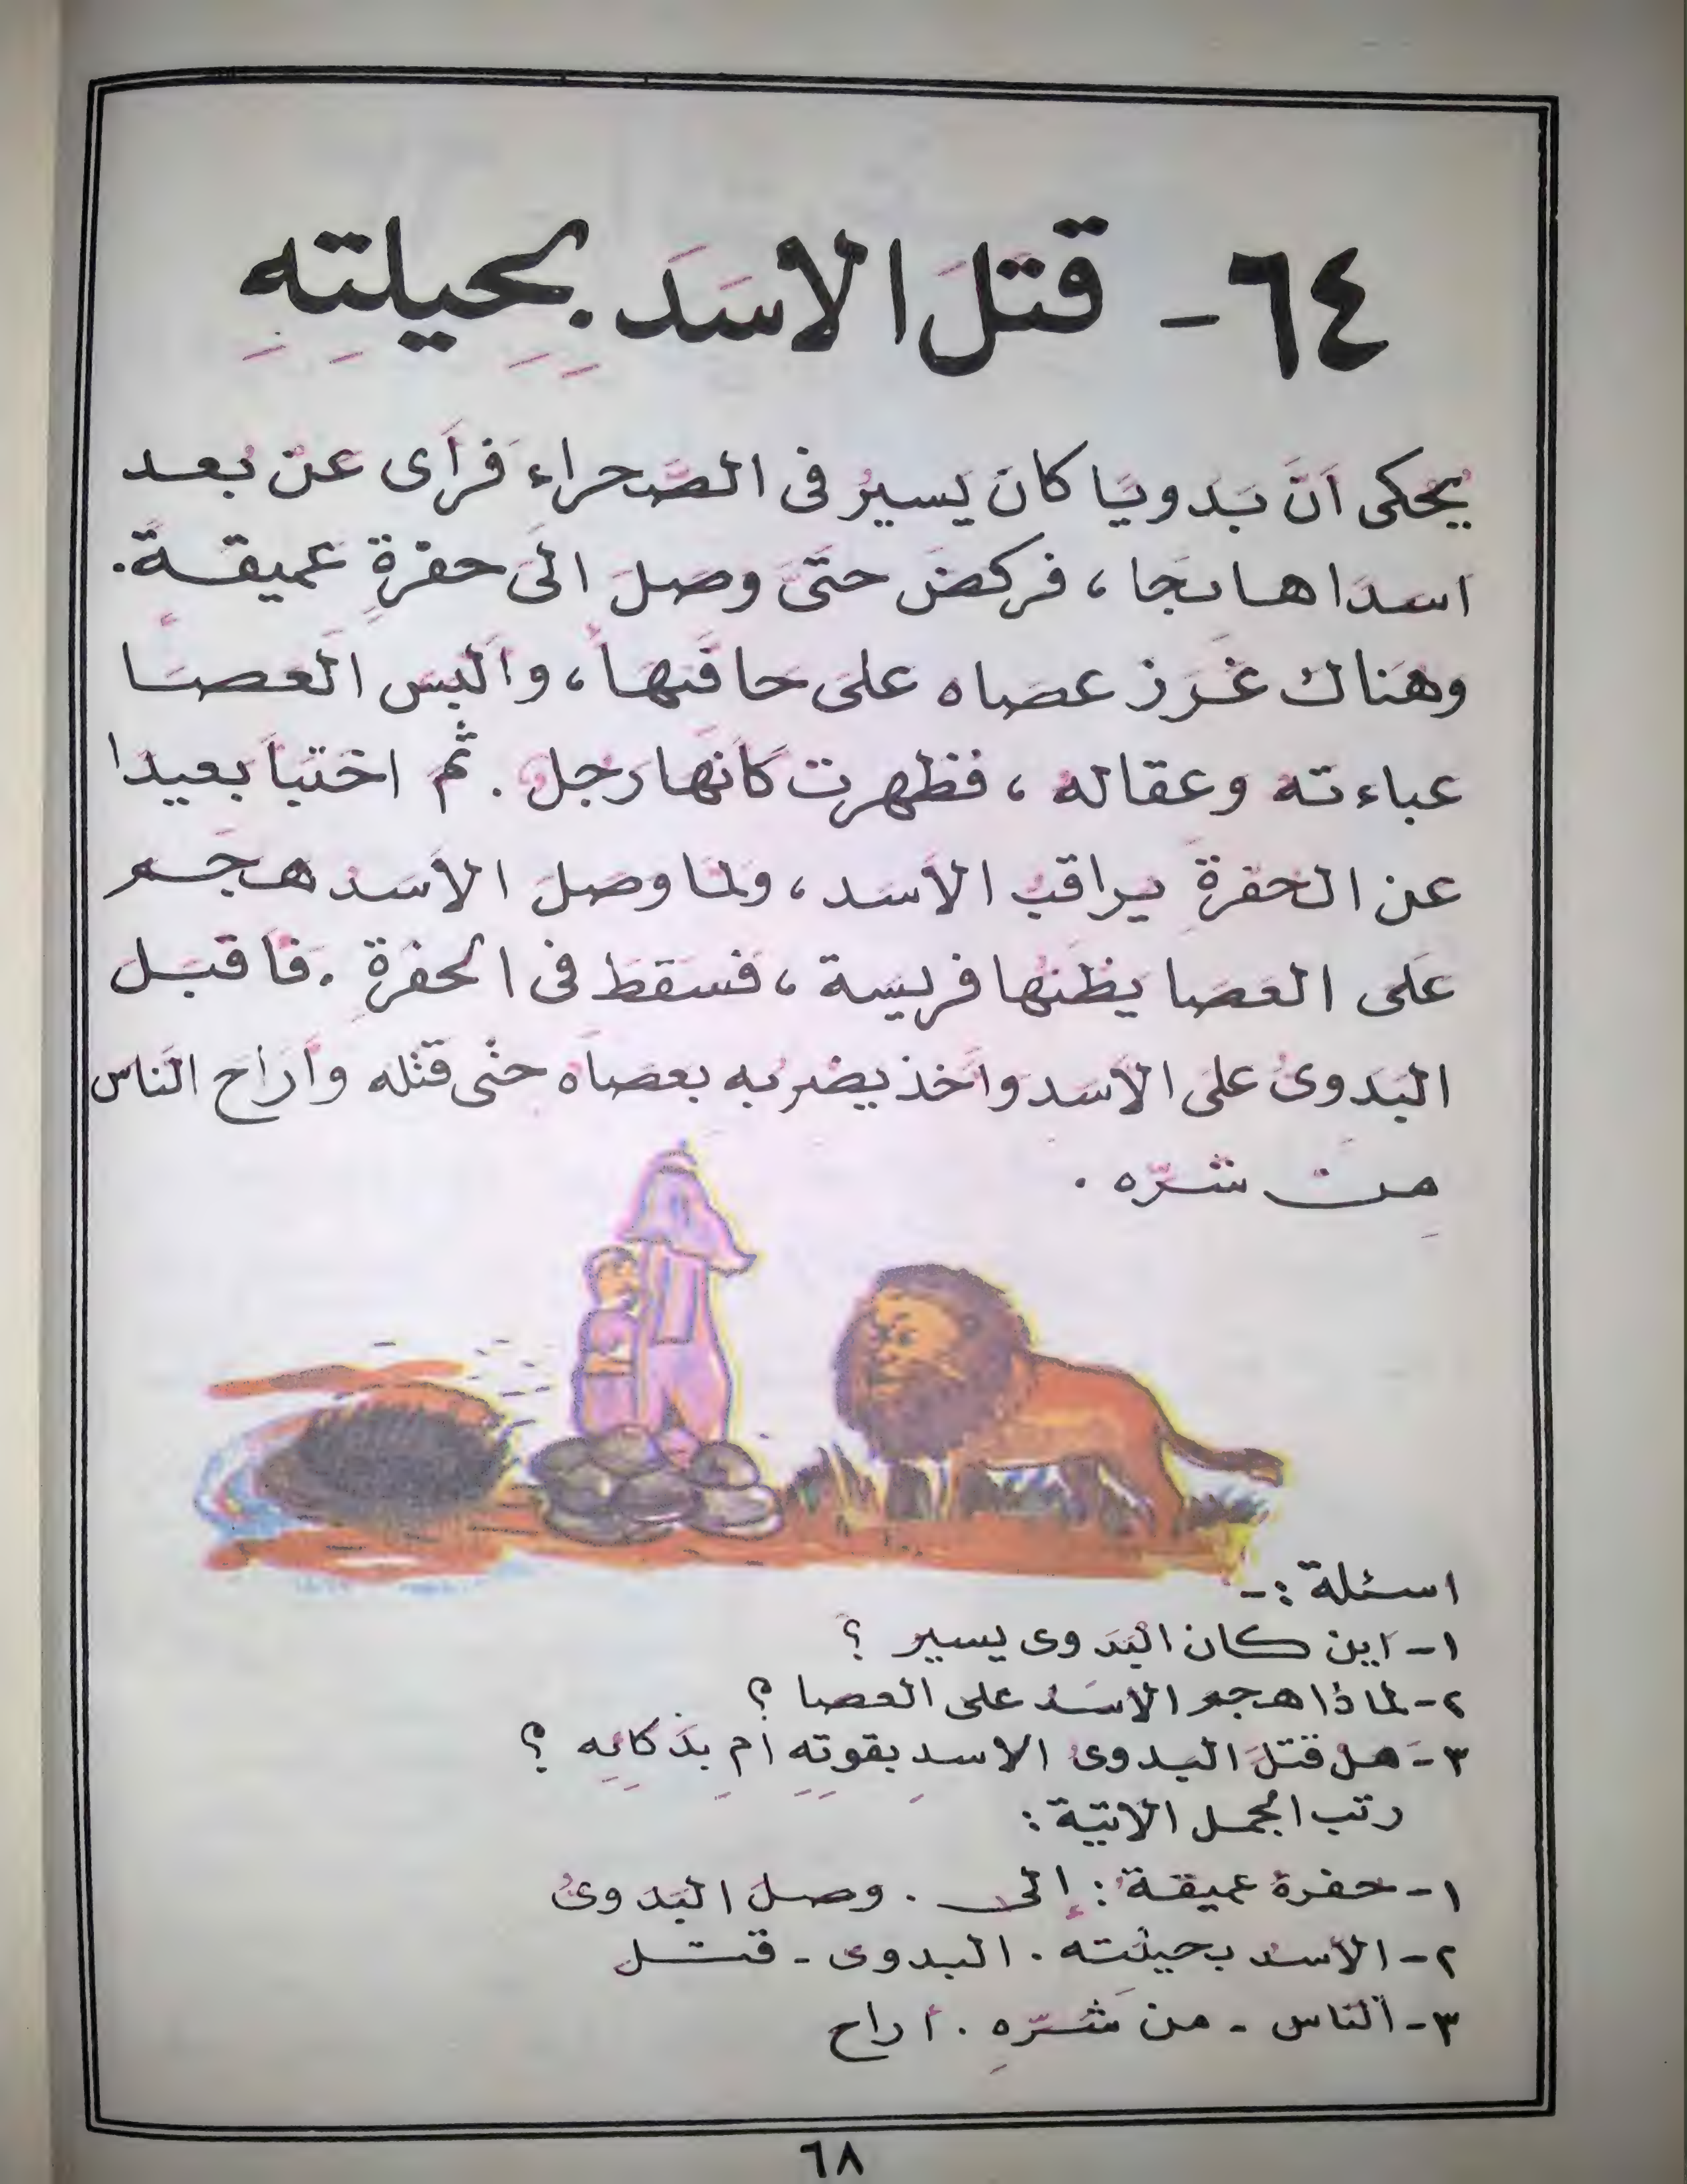 ٦٤- قتلَ الاسَدَ بِحِيلتِهِ
يُحكى اَنَّ بَدَويَا كانَ يَسيرُ فى الصَّحراء فَرأَى عَنْ بُعد
اسدَا هائجا ، فركضَ حتىَّ وصَلَ الىَ حفرةٍ عَميقـةً.
وهَناك غَرَز عصَاه علىَ حافَتهاَ ، واَلبسَ العصَا
عباءته وعقاله ، فظهرت كأنها رَجل . ثم اختبأَ بعيدا
عن الحفرةِ يراقبُ الأسَد ، ولما وصلَ الأسَد هجَم
عَلى العصَا يظنُها فريسَة ، فسقَطَ فى الحفرَةِ . فأقبَل
البَدوىُ على الأسَد وأخذ يضربُه بعصاَه حتى قتله وأرَاح الناس
مِنَ شرّه .
اسئلة :-
١- اَين كان البَدوى يسير ؟
٢- لماذا هجم الاسَد على العصا ؟
٣- هل قتلَ البدوىُ الاسدِ بقوتِهِ أمِ بذكائِهِ ؟
رتب الجمل الاتية :
١- حفرةُ عميقة : إلى . وصلَ البَدوىُ
٢- الأسدُ بحيلته . البدوى - قتل
٣- الناس - من شَرّهِ . أراح
٦٨